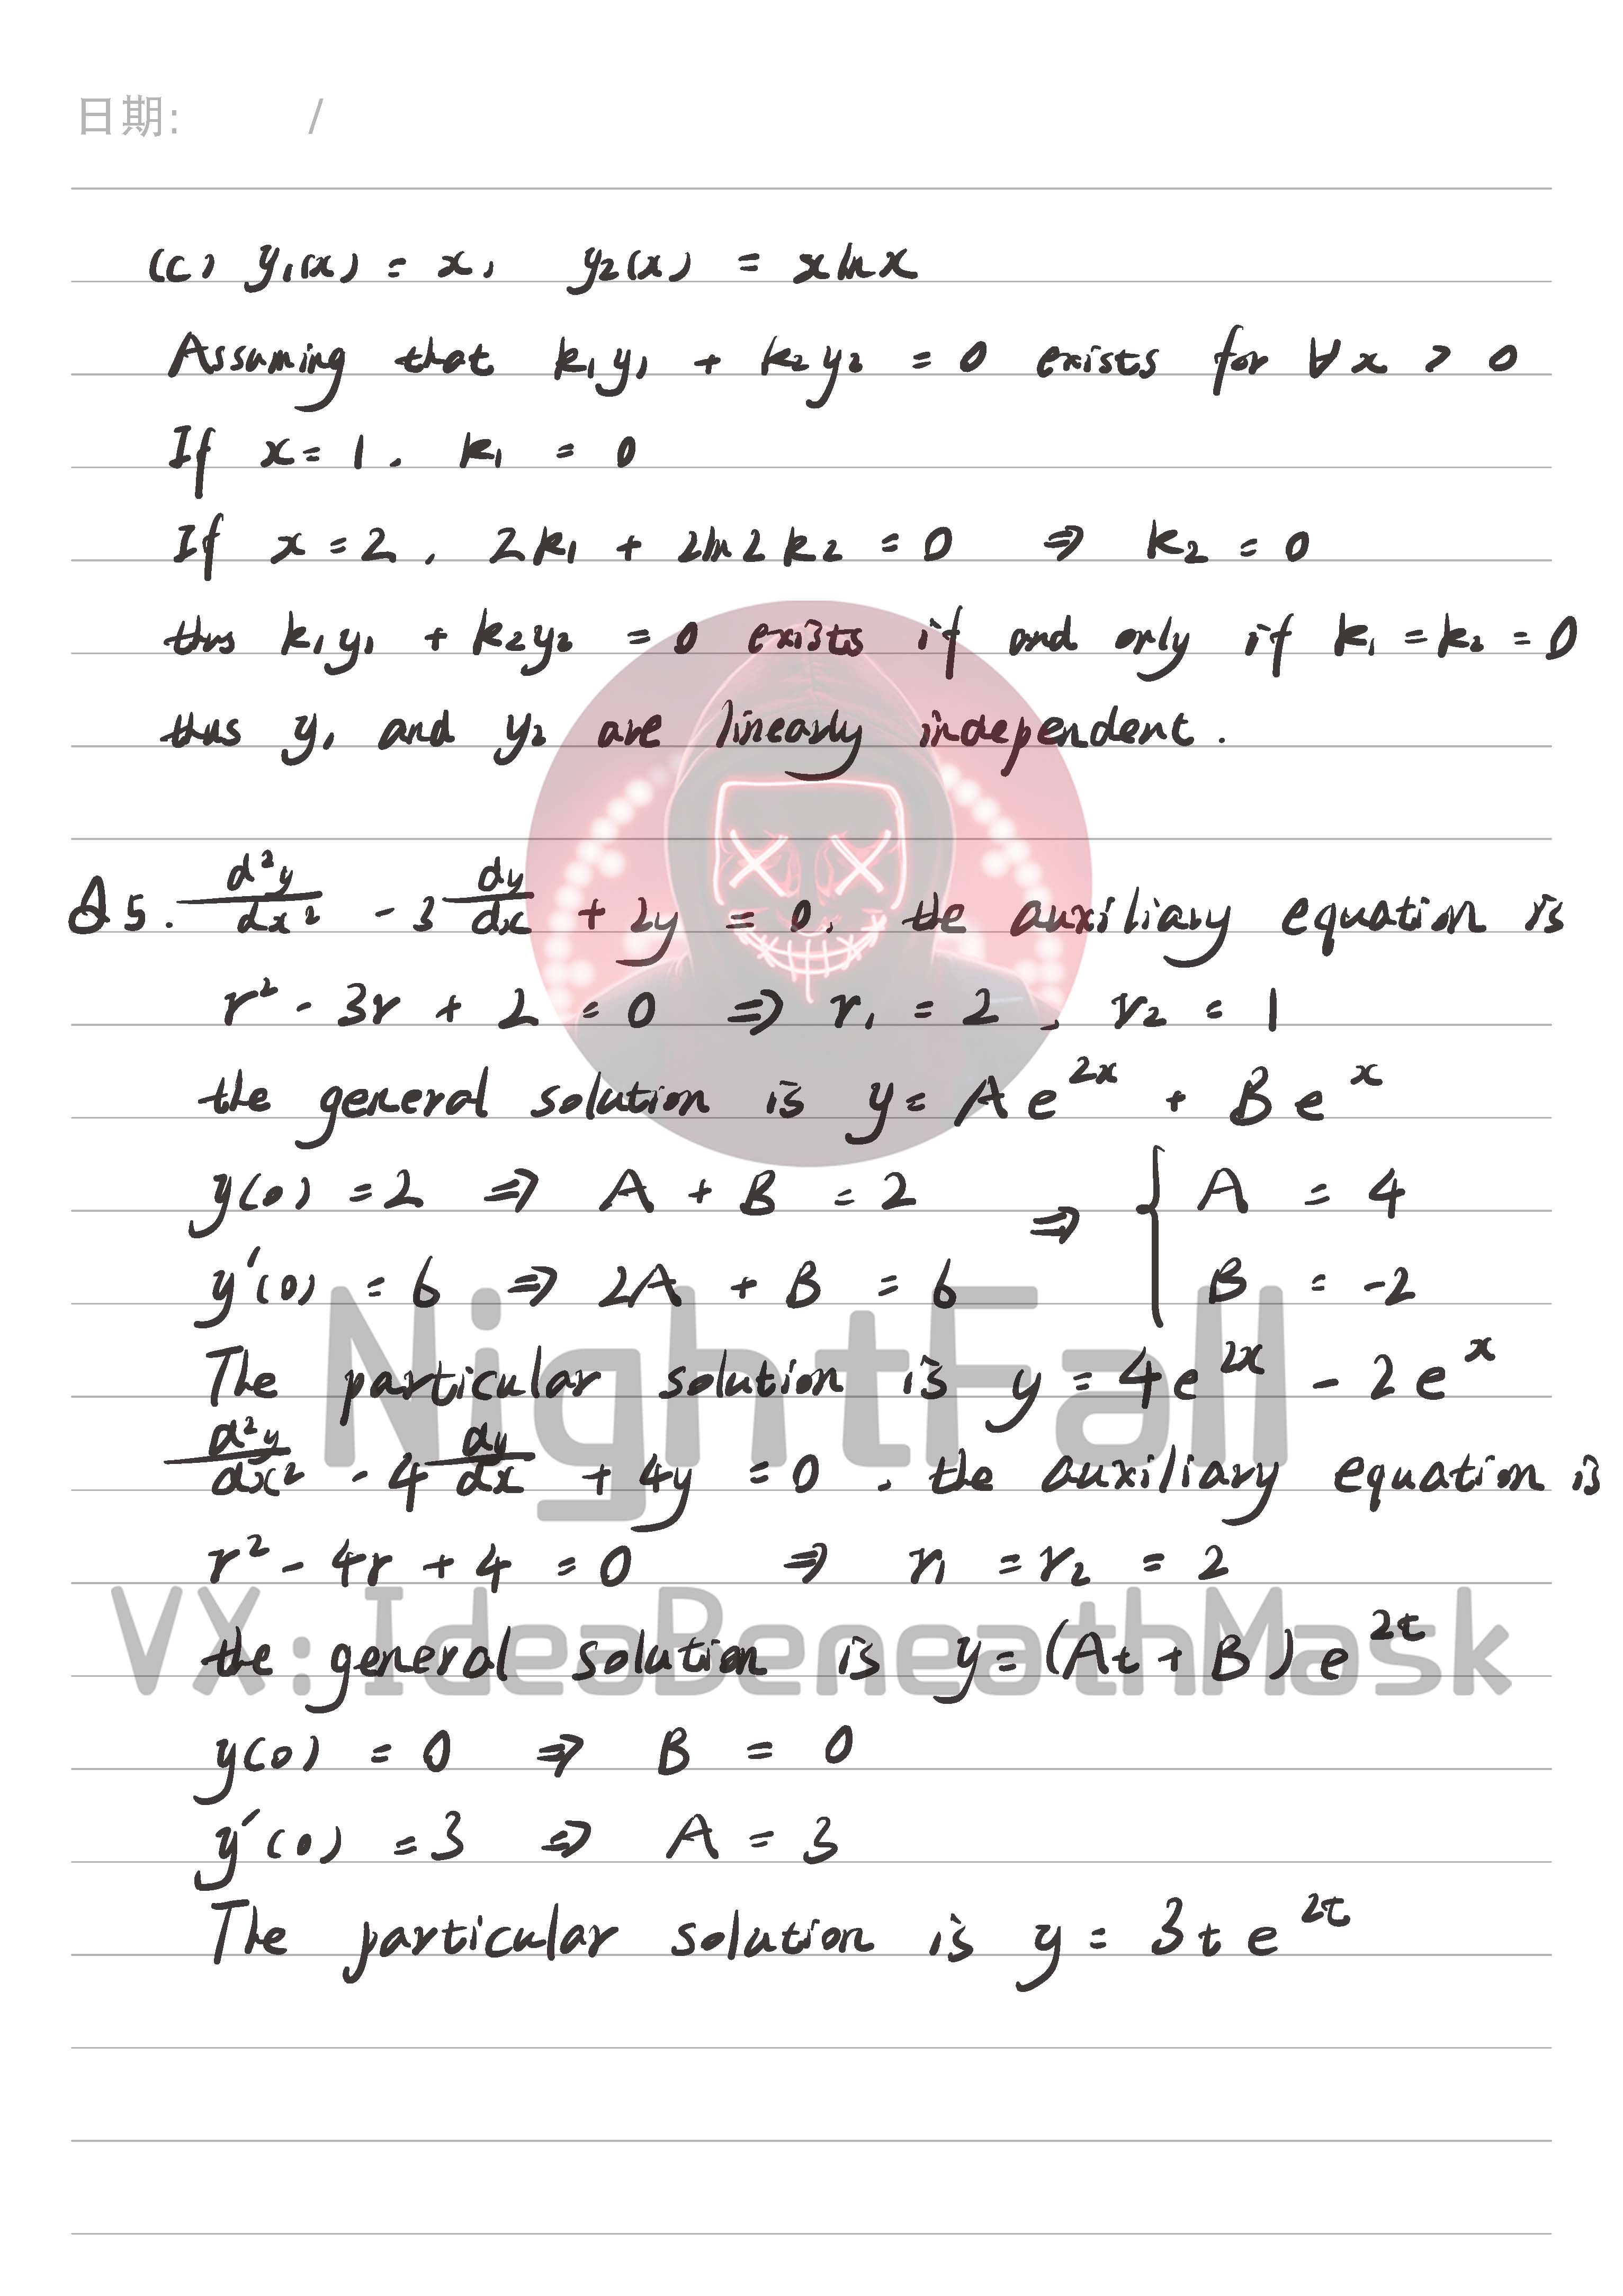 日期: /
(c) y₁(x) = x, y₂(x) = xlnx
Assuming that k₁y₁ + k₂y₂ = 0 exists for ∀x > 0
If x = 1, k₁ = 0
If x = 2, 2k₁ + 2ln2k₂ = 0 ⇒ k₂ = 0
thus k₁y₁ + k₂y₂ = 0 exists if and only if k₁ = k₂ = 0
thus y₁ and y₂ are linearly independent.
Q5. d²y/dx² - 3dy/dx + 2y = 0, the auxiliary equation is
r² - 3r + 2 = 0 ⇒ r₁ = 2, r₂ = 1
the general solution is y = Ae²ˣ + Beˣ
y(0) = 2 ⇒ A + B = 2 ⇒ { A = 4
y'(0) = 6 ⇒ 2A + B = 6 B = -2
NightFall
The particular solution is y = 4e²ˣ - 2eˣ
d²y/dx² - 4dy/dx + 4y = 0, the auxiliary equation is
r² - 4r + 4 = 0 ⇒ r₁ = r₂ = 2
VX: IdeaBeneathMask
the general solution is y = (At + B)e²ᵗ
y(0) = 0 ⇒ B = 0
y'(0) = 3 ⇒ A = 3
The particular solution is y = 3te²ᵗ